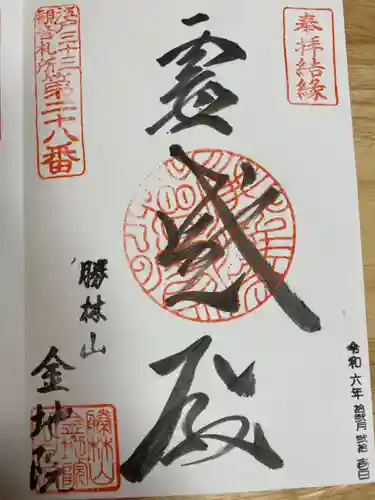 奉拝結縁
令和六年 拾弐月 弐拾壱日
霊感殿
江戸三十三
観音札所第二十八番
勝林山
金地院
勝林山
金地院